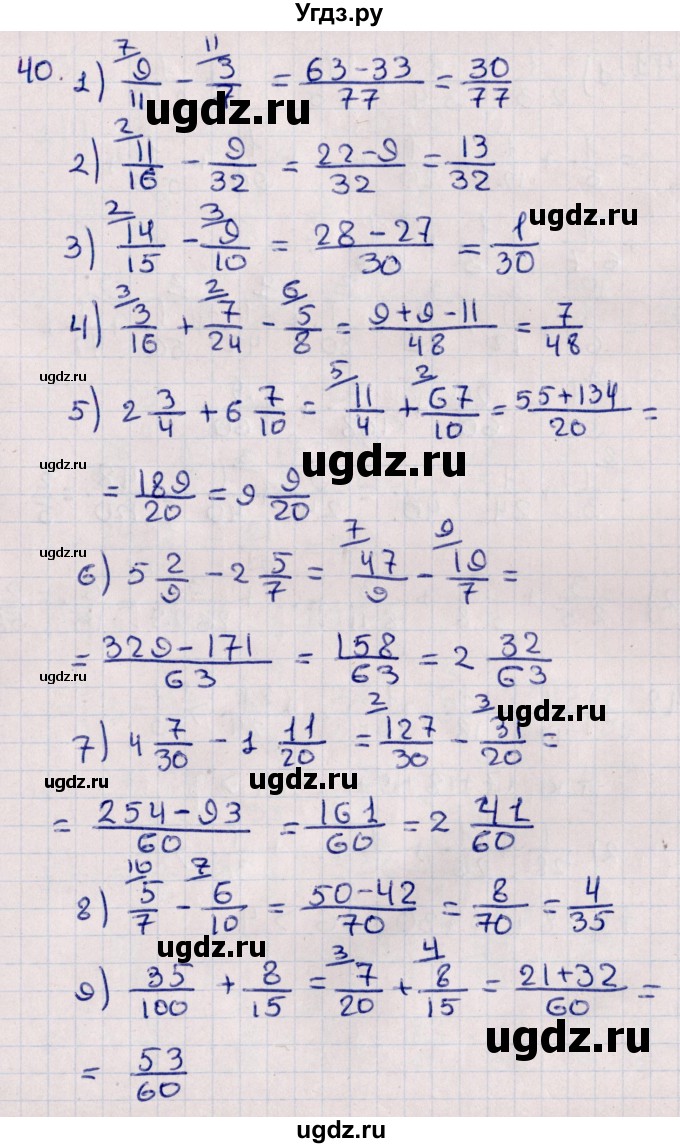 Угдз.ру
40. 1) 7/ 9/11 - 11/ 3/7 = (63-33)/77 = 30/77
ugdz.ru
2) 2/ 11/16 - 9/32 = (22-9)/32 = 13/32
ugdz.ru
3) 2/ 14/15 - 3/ 9/10 = (28-27)/30 = 1/30
4) 3/ 3/16 + 2/ 7/24 - 6/ 5/8 = (9+9-11)/48 = 7/48
ugdz.ru
5) 2 3/4 + 6 7/10 = 5/ 11/4 + 2/ 67/10 = (55+134)/20 =
ugdz.ru
ugdz.ru
= 189/20 = 9 9/20
6) 5 2/9 - 2 5/7 = 7/ 47/9 - 9/ 19/7 =
= (329-171)/63 = 158/63 = 2 32/63
ugdz.ru
7) 4 7/30 - 1 11/20 = 2/ 127/30 - 3/ 31/20 =
ugdz.ru
ugdz.ru
= (254-93)/60 = 161/60 = 2 41/60
8) 10/ 5/7 - 7/ 6/10 = (50-42)/70 = 8/70 = 4/35
ugdz.ru
9) 35/100 + 8/15 = 3/ 7/20 + 4/ 8/15 = (21+32)/60 =
ugdz.ru
= 53/60
ugdz.ru